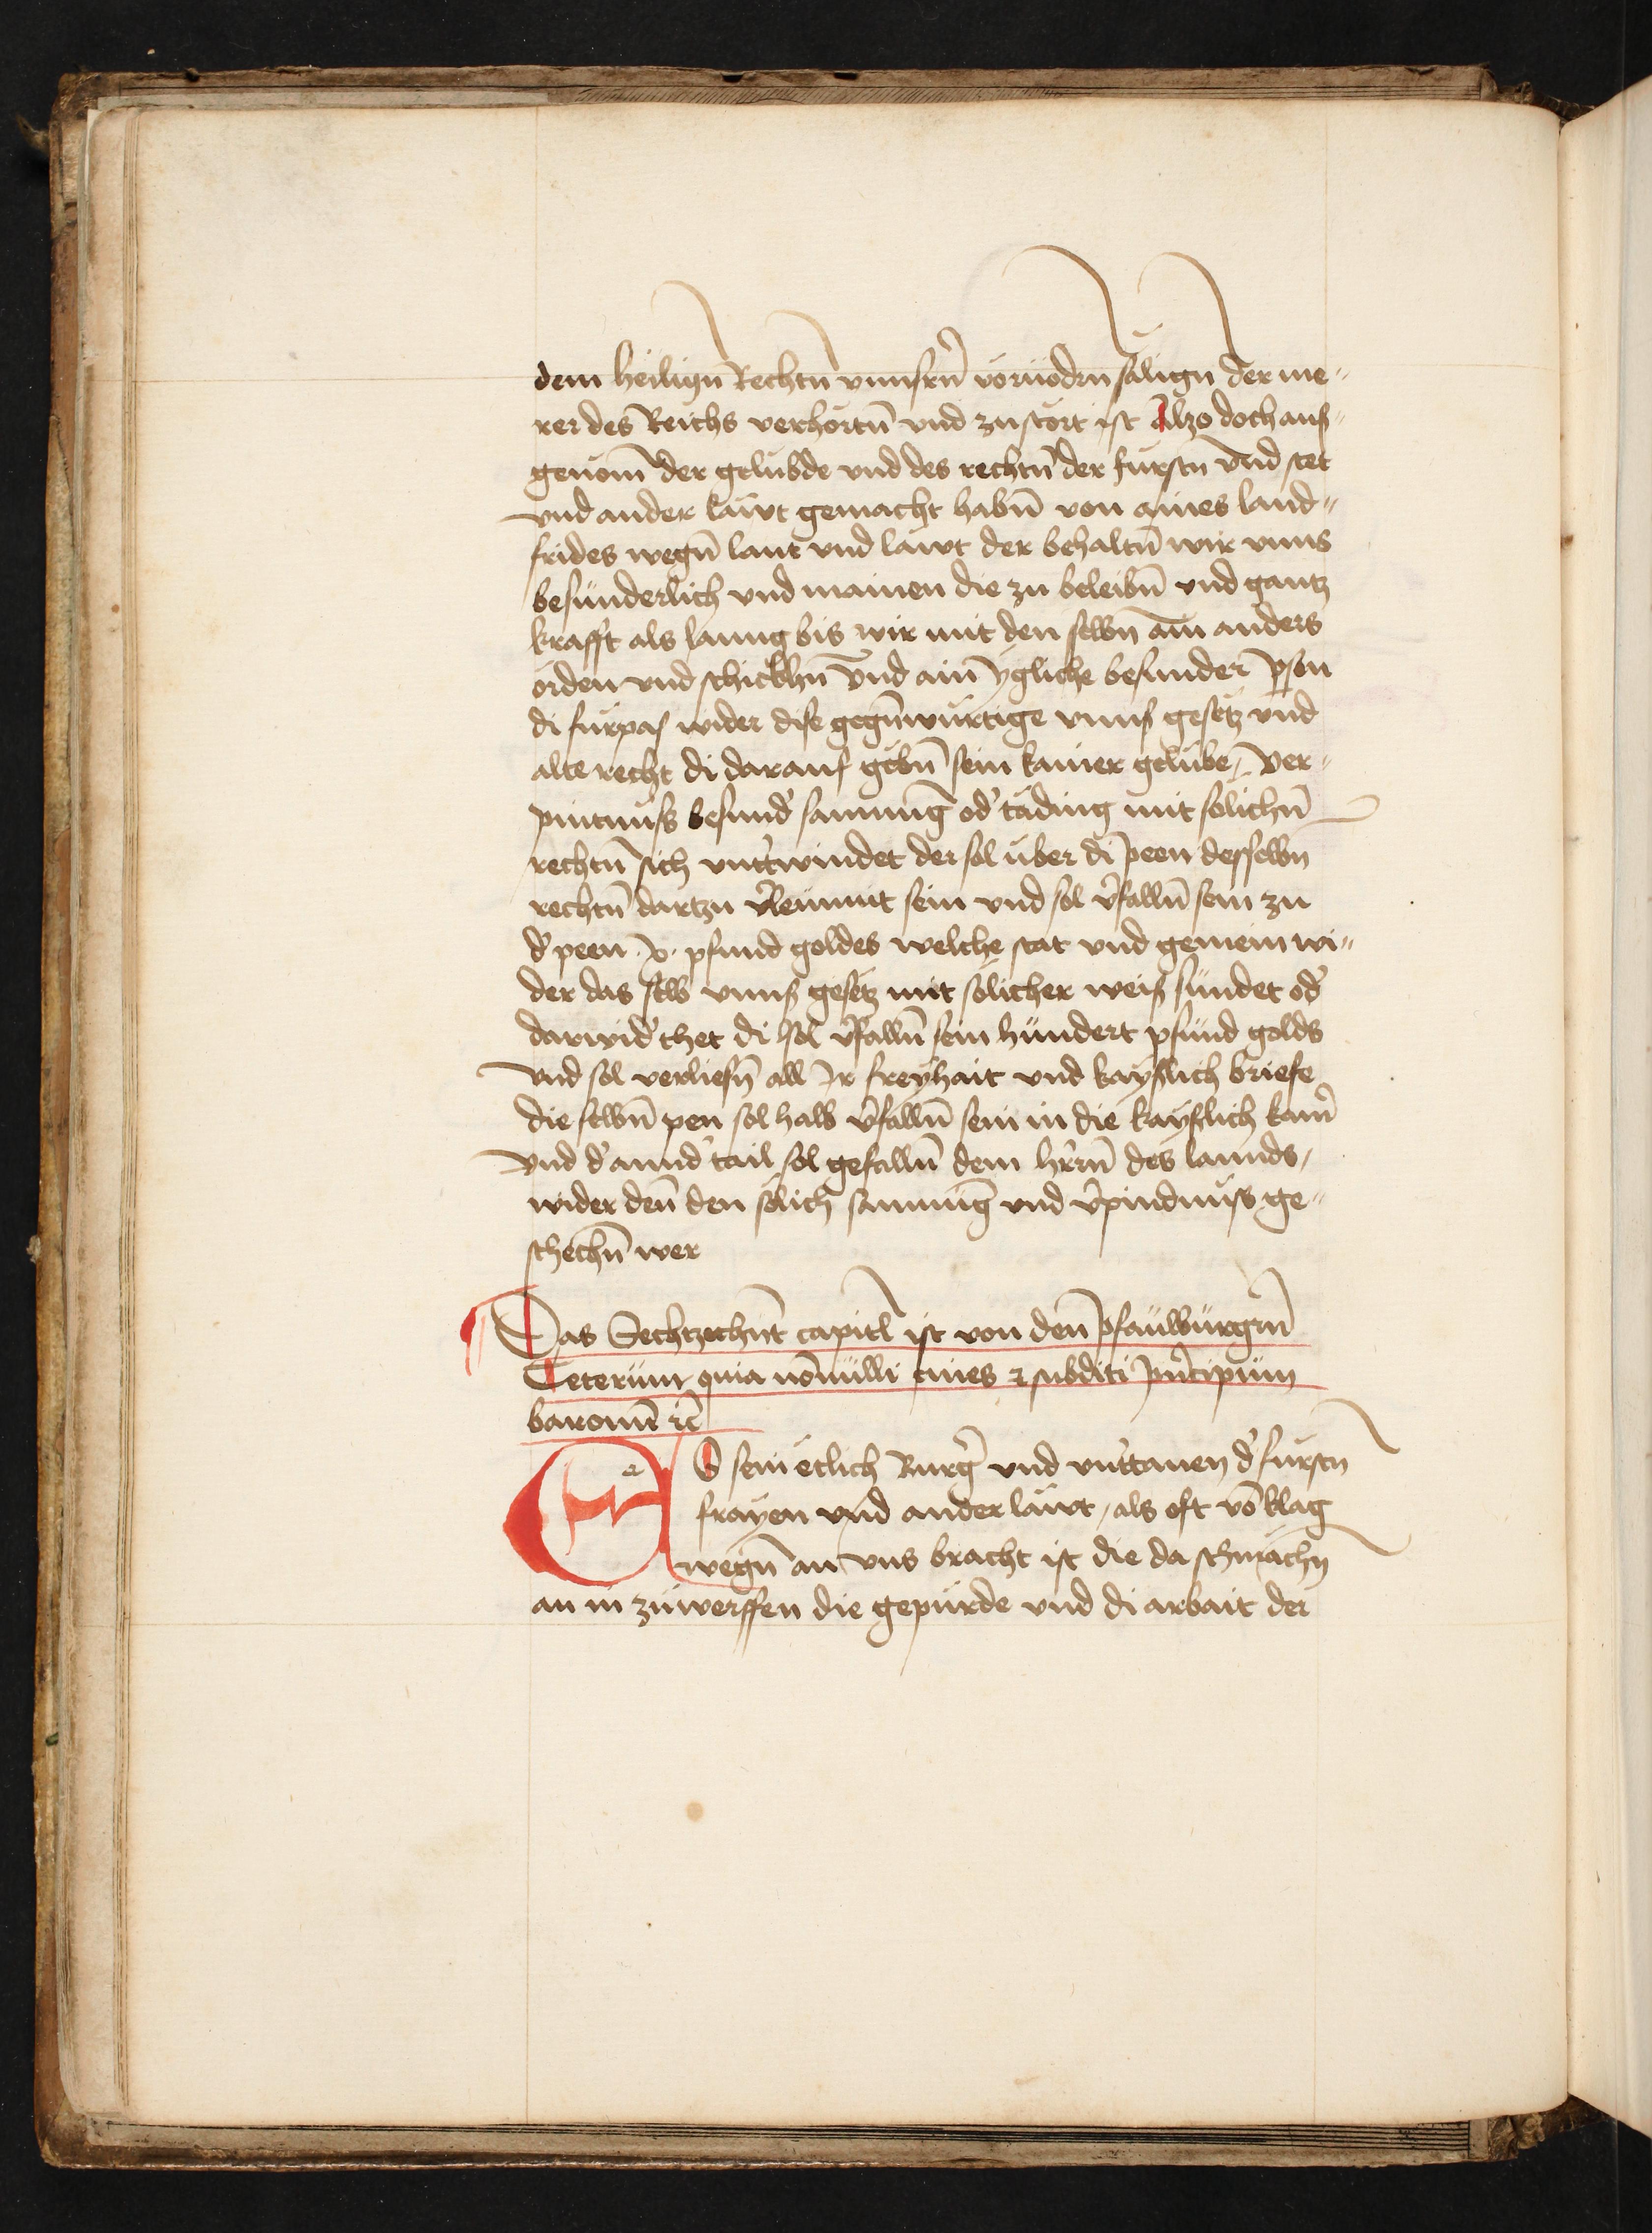 dem heilign̄ Rechtn̄ vnnsrn̄ voruodrn säligen der me„
rer des Reichs verhortn̄ vnd zustört ist Alzo doch aus„
genom̄ der gelubde vnd des rechtn̄ der fursten vnd stet
vnd ander läwt gemacht habn̄ von aines land„
frides wegn̄ lant vnd läwt der behaltn̄ wir vnns
besünderlich vnd mainen die zu beleibn̄ vnd gantz
krafft als lanng bis wir mit den selbn ain anders
orden vnd schickhn̄ Vnd ain ÿgliche besunder pson
di fürpas wider dise gegn̄würtige vnnß gesetz vnd
alte recht di darauf gebn̄ sein kainer gelube, ver„
pintnuss besund' samung od' täding mit solichn̄
rechtn̄ sich vnt'windet der sol über di peen desselbn
rechtn̄ dartzu v'leümut sein vnd sol v'falln̄ sein zu
d' peen .x. pfund goldes welche stat vnd gemein wi„
der das selb vnnß gesetz mit sölicher weiß sündet od'
darwid' thet di sol v'falln̄ sein hündert pfund golds
vnd sol verliesn̄ all Ir freÿhait vnd kaÿslich briefe
die selbn̄ pen sol halb v'falln̄ sein in die kaÿslich kam̄
vnd d' annd' tail sol gefalln̄ dem hr̄rn̄ des lannds,
wider den̄ den solich samung vnd v'pindnuss ge„
schechn̄ wer
Das Sechtzechint capitl ist von den̄ pfaülbürgrn̄
Ceterüm quia nōnülli ciues ⁊ subditi pn̄cipüm
baronum ⁊c̄
ES sein etlich Burg' vnd vnt'tanen d' fursten
fraÿen vnd ander läwt, als oft vō klag
wegn̄ an vns bracht ist die da schmächn̄
an in zuwerffen die gepürde vnd di arbait der